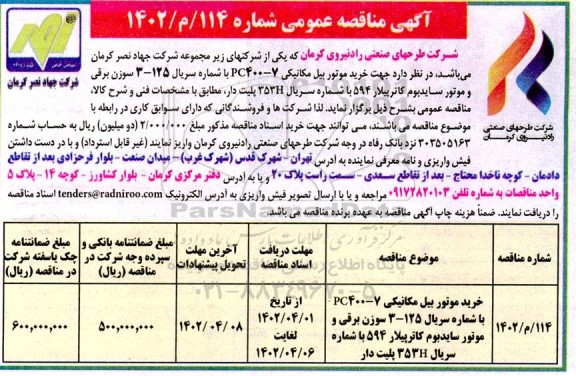 آگهی مناقصه عمومی شماره ۱۱۴/م/۱۴۰۲
شرکت جهاد نصر کرمان
شرکت طرحهای صنعتی
رادنیروی کرمان
شرکت طرحهای صنعتی رادنیروی کرمان که یکی از شرکتهای زیر مجموعه شرکت جهاد نصر کرمان
می‌باشد، در نظر دارد جهت خرید موتور بیل مکانیکی PC۴۰۰-۷ با شماره سریال ۱۲۵-۳ سوزن برقی
و موتور سایدبوم کاترپیلار ۵۹۴ با شماره سریال ۳۵۳H پلیت دار، مطابق با مشخصات فنی و شرح کالا،
مناقصه عمومی بشرح ذیل برگزار نماید. لذا شرکت ها و فروشندگانی که دارای سوابق کاری در رابطه با
موضوع مناقصه می باشند، می توانند جهت خرید اسناد مناقصه مذکور مبلغ ۲/۰۰۰/۰۰۰ (دو میلیون) ریال به حساب شماره
۳۰۳۵۰۵۱۶۳ نزد بانک رفاه در وجه شرکت طرحهای صنعتی رادنیروی کرمان واریز نمایند (غیر قابل استرداد) و با در دست داشتن
فیش واریزی و نامه معرفی نماینده به آدرس تهران - شهرک قدس (شهرک غرب) - میدان صنعت - بلوار فرحزادی بعد از تقاطع
دادمان - کوچه ناخدا محتاج - بعد از تقاطع سعدی - سمت راست پلاک ۲۰ و یا به آدرس دفتر مرکزی کرمان - بلوار کشاورز - کوچه ۱۴ - پلاک ۵
واحد مناقصات به شماره تلفن ۰۹۱۷۲۸۲۰۱۰۳ مراجعه و یا با ارسال تصویر فیش واریزی به آدرس الکترونیک tenders@radniroo.com اسناد مناقصه
را دریافت نمایند. ضمناً هزینه چاپ آگهی مناقصه به عهده برنده مناقصه می باشد.
شماره مناقصه موضوع مناقصه مهلت دریافت اسناد مناقصه آخرین مهلت تحویل پیشنهادات مبلغ ضمانتنامه بانکی و سپرده وجه شرکت در مناقصه (ریال) مبلغ ضمانتنامه چک یا سفته شرکت در مناقصه (ریال)
۱۱۴/م/۱۴۰۲ خرید موتور بیل مکانیکی PC۴۰۰-۷ با شماره سریال ۱۲۵-۳ سوزن برقی و موتور سایدبوم کاترپیلار ۵۹۴ با شماره سریال ۳۵۳H پلیت دار از تاریخ ۱۴۰۲/۰۴/۰۱ لغایت ۱۴۰۲/۰۴/۰۶ ۱۴۰۲/۰۴/۰۸ ۵۰۰,۰۰۰,۰۰۰ ۶۰۰,۰۰۰,۰۰۰
۰۲۱-۸۸۳۴۹۶۷۰-۵